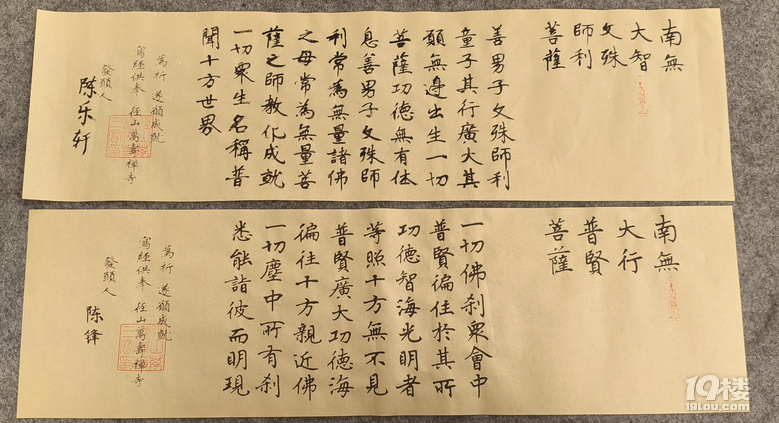 南無
大智
文殊
師利
菩薩
善男子文殊師利
童子其行廣大其
願無邊出生一切
菩薩功德無有休
息善男子文殊師
利常為無量諸佛
之母常為無量菩
薩之師教化成就
一切眾生名稱普
聞十方世界
萬祈 遂願成就
寫經供奉 徑山萬壽禪寺
發願人
陈乐轩
南無
大行
普賢
菩薩
一切佛刹眾會中
普賢徧住於其所
功德智海光明者
等照十方無不見
普賢廣大功德海
徧往十方親近佛
一切塵中所有刹
悉能詣彼而明現
萬祈 遂願成就
寫經供奉 徑山萬壽禪寺
發願人
陈锋
19楼
19lou.com